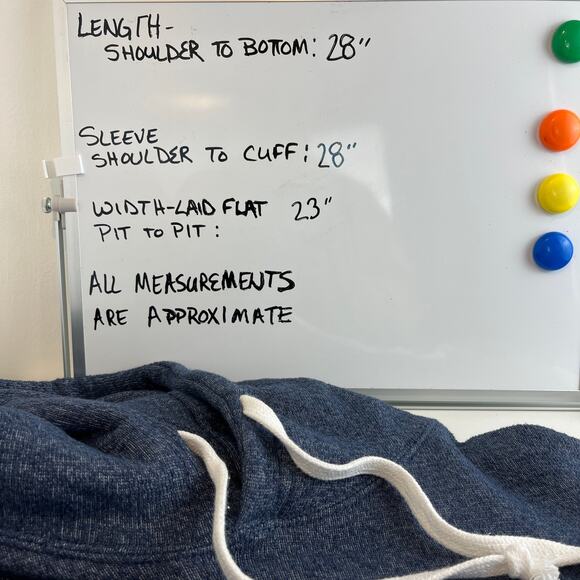 LENGTH-
SHOULDER TO BOTTOM: 28"
SLEEVE
SHOULDER TO CUFF: 28"
WIDTH-LAID FLAT 23"
PIT TO PIT:
ALL MEASUREMENTS
ARE APPROXIMATE